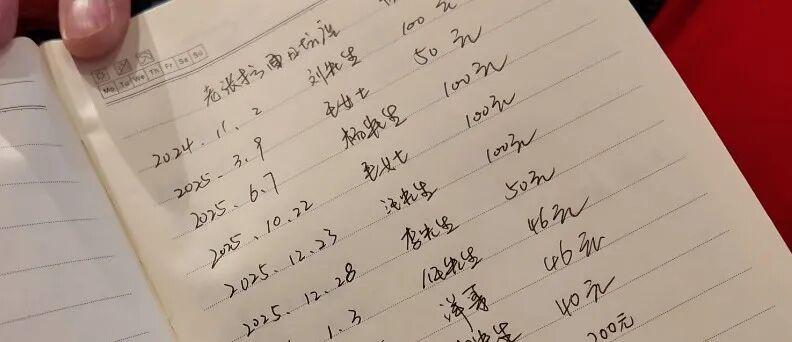 Mo Tu We Th Fr Sa Su
老张
2024.11.2 刘先生 100元
2025.3.9 女士 50元
2025.6.7 杨先生 100元
2025.10.22 女士 100元
2025.12.23 汪先生 100元
2025.12.28 先生 50元
1.3 先生 46元
46元
先生 40元
200元